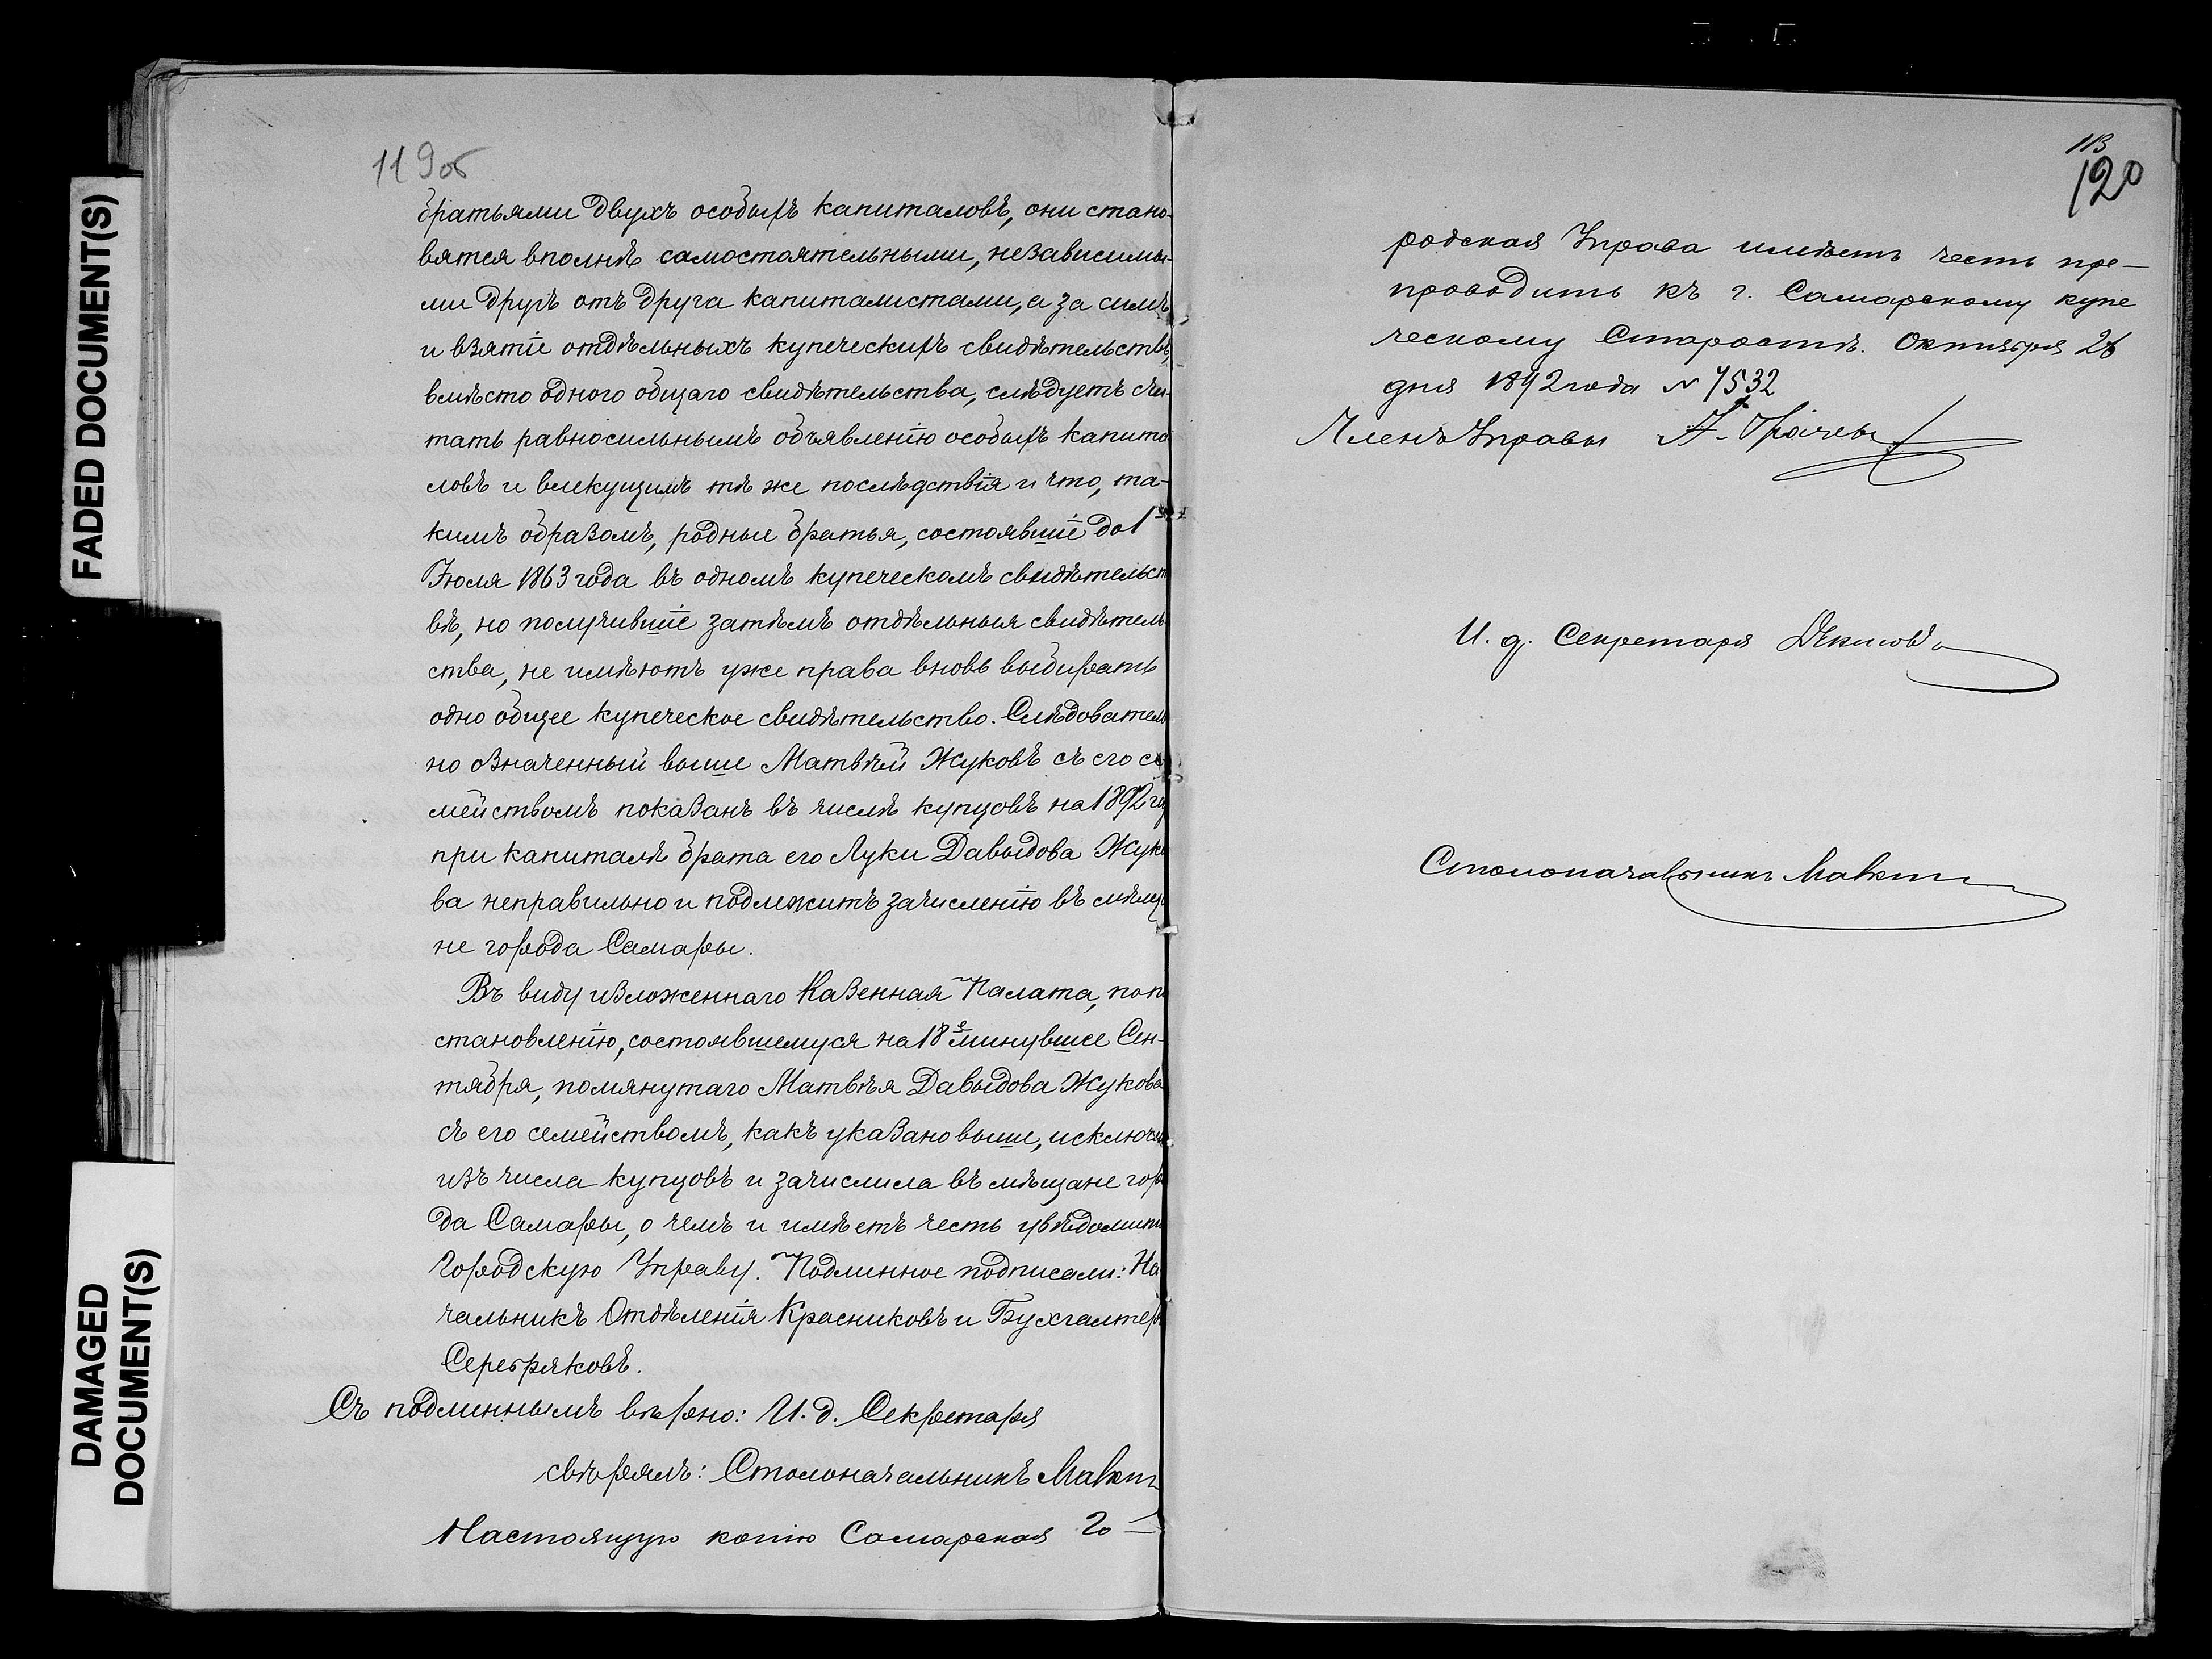 FADED DOCUMENT(S)
DAMAGED
DOCUMENT(S)
119об
братьями двухъ особыхъ капиталовъ, они стано-
вятся вполнѣ самостоятельными, независимы-
ми другъ отъ друга капиталистами, а за симъ
и взятіе отдѣльныхъ купеческихъ свидѣтельствъ,
вмѣсто одного общаго свидѣтельства, слѣдуетъ счи-
тать равносильнымъ объявленію особыхъ капита
ловъ и влекущимъ тѣ же послѣдствія и что, та-
кимъ образомъ, родные братья, состоявшіе до 1
Іюля 1863 года въ одномъ купеческомъ свидѣтельст
вѣ, но получившіе затѣмъ отдѣльныя свидѣтель
ства, не имѣютъ уже права вновь выбирать
одно общее купеческое свидѣтельство. Слѣдователь
но означенный выше Матвѣй Жуковъ съ его се
мействомъ показанъ въ числѣ купцовъ на 1892 го
при капиталѣ брата его Луки Давыдова Жуко
ва неправильно и подлежитъ зачисленію въ мѣща
не города Самары.
Въ виду изложеннаго Казенная Палата, по по
становленію, состоявшемуся на 18е минувшее Сен-
тября, помянутаго Матвѣя Давыдова Жукова
съ его семействомъ, какъ указано выше, исключи
изъ числа купцовъ и зачислила въ мѣщане горо
да Самары, о чемъ и имѣетъ честь увѣдомить
Городскую Управу. Подлинное подписали: На
чальникъ Отдѣленія Красниковъ и Бухгалтеръ
Серебряковъ.
Съ подлиннымъ вѣрно: И. д. Секретаря
свѣрялъ: Столоначальникъ
Настоящую копію Самарская Го-
113
120
родская Управа имѣетъ честь пре-
проводить къ г. Самарскому купе
ческому Старостѣ. Октября 26
дня 1892 года № 7532
Членъ Управы
И. д. Секретаря
Столоначальникъ